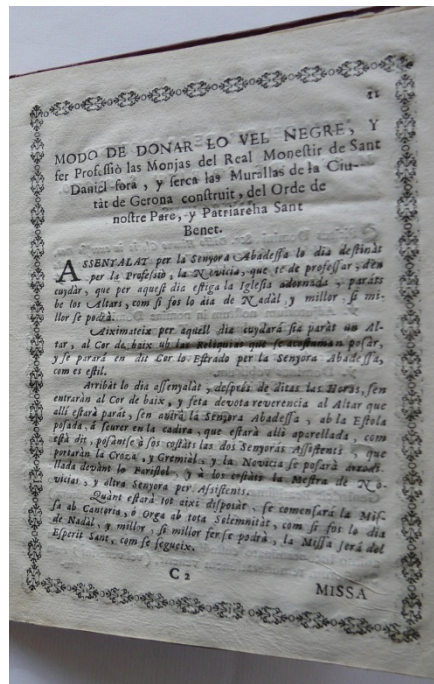 11
MODO DE DONAR LO VEL NEGRE, Y
fer Professiò las Monjas del Real Monestir de Sant
Daniel fora, y serca las Murallas de la Ciu-
tàt de Gerona construit, del Orde de
nostre Pare, y Patriarcha Sant
Benet.
ASSENYALAT per la Senyora Abadessa lo dia destinàt
per la Professio, la Novicia, que te de professar, deu
cuydàr, que per aquest dia estiga la Iglesia adornada, paràts
be los Altars, com si fos lo dia de Nadàl, y millor, si mi-
llor se podrà.
Aiximateix per aquell dia cuydarà sia paràt un Al-
tar, al Cor de baix ab las Reliquias que se acostuman posàr,
y se pararà en dit Cor lo Estrado per la Senyora Abadessa,
com es estil.
Arribàt lo dia assenyalàt, desprès de ditas las Horas, sen
entraràn al Cor de baix, y feta devota reverencia al Altar que
allì estarà paràt, sen anirà la Senyora Abadessa, ab la Estola
posada, à seurer en la cadira, que estarà allì aparellada, com
està dit, posantse à sos costàts las dos Senyoras Assistents, que
portaràn la Croza, y Gremiàl, y la Novicia se posarà agenoll-
llada devànt lo Faristol, y à los costàts la Mestra de No-
vicias, y altra Senyora per Assistents.
Quànt estarà tot aixi disposàt, se comensarà la Mis-
sa ab Cantoria, ò Orga ab tota Solemnitàt, com si fos lo dia
de Nadàl, y millor, si millor ferse podrà, la Missa serà del
Esperit Sant, com se segueix.
C 2
MISSA